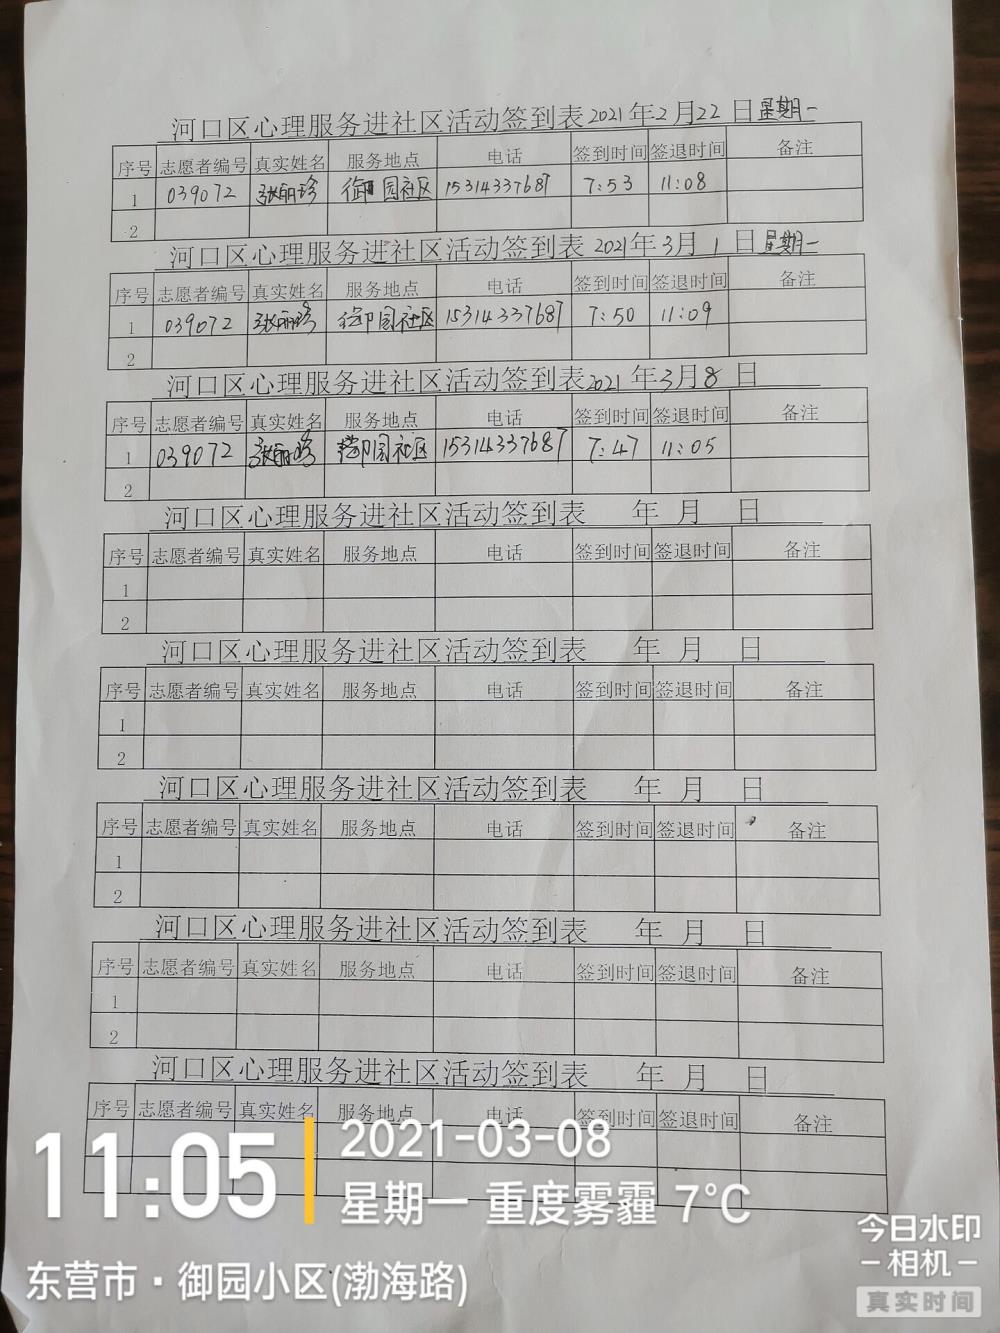 河口区心理服务进社区活动签到表2021年2月22日星期一
序号 志愿者编号 真实姓名 服务地点 电话 签到时间 签退时间 备注
1 039072 张丽珍 御园社区 15314337687 7:53 11:08
2
河口区心理服务进社区活动签到表2021年3月1日星期一
序号 志愿者编号 真实姓名 服务地点 电话 签到时间 签退时间 备注
1 039072 张丽珍 御园社区 15314337687 7:50 11:09
2
河口区心理服务进社区活动签到表2021年3月8日
序号 志愿者编号 真实姓名 服务地点 电话 签到时间 签退时间 备注
1 039072 张丽珍 御园社区 15314337687 7:47 11:05
2
河口区心理服务进社区活动签到表 年 月 日
序号 志愿者编号 真实姓名 服务地点 电话 签到时间 签退时间 备注
1
2
河口区心理服务进社区活动签到表 年 月 日
序号 志愿者编号 真实姓名 服务地点 电话 签到时间 签退时间 备注
1
2
河口区心理服务进社区活动签到表 年 月 日
序号 志愿者编号 真实姓名 服务地点 电话 签到时间 签退时间 备注
1
2
河口区心理服务进社区活动签到表 年 月 日
序号 志愿者编号 真实姓名 服务地点 电话 签到时间 签退时间 备注
1
2
河口区心理服务进社区活动签到表 年 月 日
序号 志愿者编号 真实姓名 服务地点 电话 签到时间 签退时间 备注
11:05
2021-03-08
星期一 重度雾霾 7°C
东营市·御园小区(渤海路)
今日水印
-相机-
真实时间